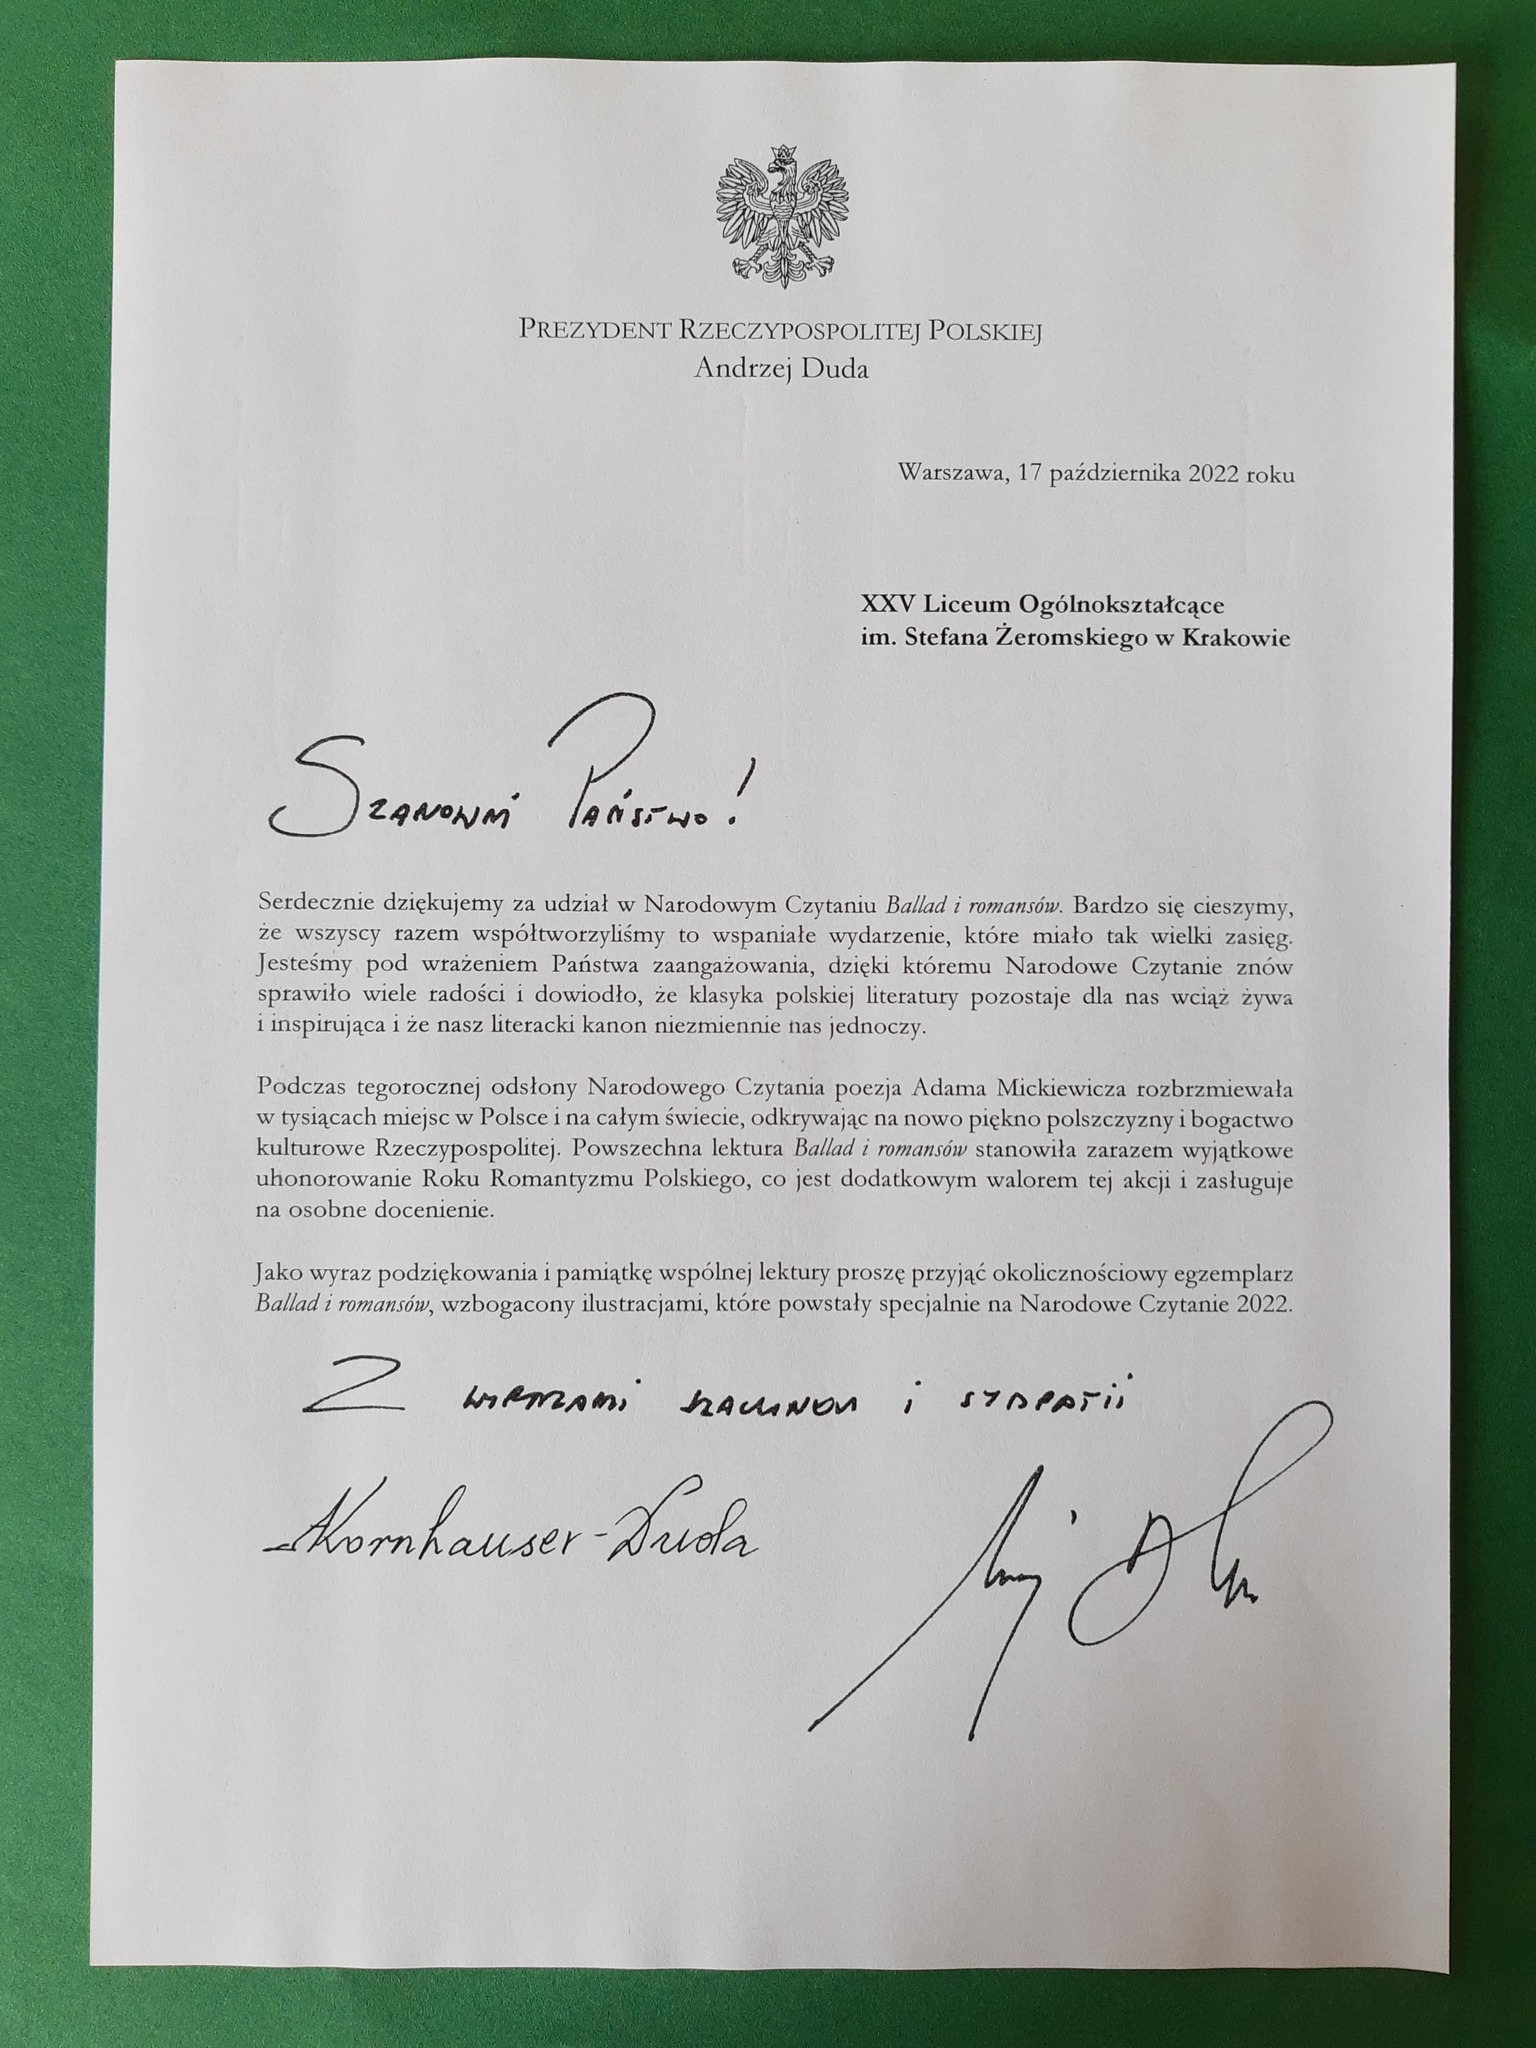 PREZYDENT RZECZYPOSPOLITEJ POLSKIEJ
Andrzej Duda
Warszawa, 17 października 2022 roku
XXV Liceum Ogólnokształcące
im. Stefana Żeromskiego w Krakowie
Szanowni Państwo!
Serdecznie dziękujemy za udział w Narodowym Czytaniu Ballad i romansów. Bardzo się cieszymy,
że wszyscy razem współtworzyliśmy to wspaniałe wydarzenie, które miało tak wielki zasięg.
Jesteśmy pod wrażeniem Państwa zaangażowania, dzięki któremu Narodowe Czytanie znów
sprawiło wiele radości i dowiodło, że klasyka polskiej literatury pozostaje dla nas wciąż żywa
i inspirująca i że nasz literacki kanon niezmiennie nas jednoczy.
Podczas tegorocznej odsłony Narodowego Czytania poezja Adama Mickiewicza rozbrzmiewała
w tysiącach miejsc w Polsce i na całym świecie, odkrywając na nowo piękno polszczyzny i bogactwo
kulturowe Rzeczypospolitej. Powszechna lektura Ballad i romansów stanowiła zarazem wyjątkowe
uhonorowanie Roku Romantyzmu Polskiego, co jest dodatkowym walorem tej akcji i zasługuje
na osobne docenienie.
Jako wyraz podziękowania i pamiątkę wspólnej lektury proszę przyjąć okolicznościowy egzemplarz
Ballad i romansów, wzbogacony ilustracjami, które powstały specjalnie na Narodowe Czytanie 2022.
Z wyrazami szacunku i sympatii
AKornhauser-Duda